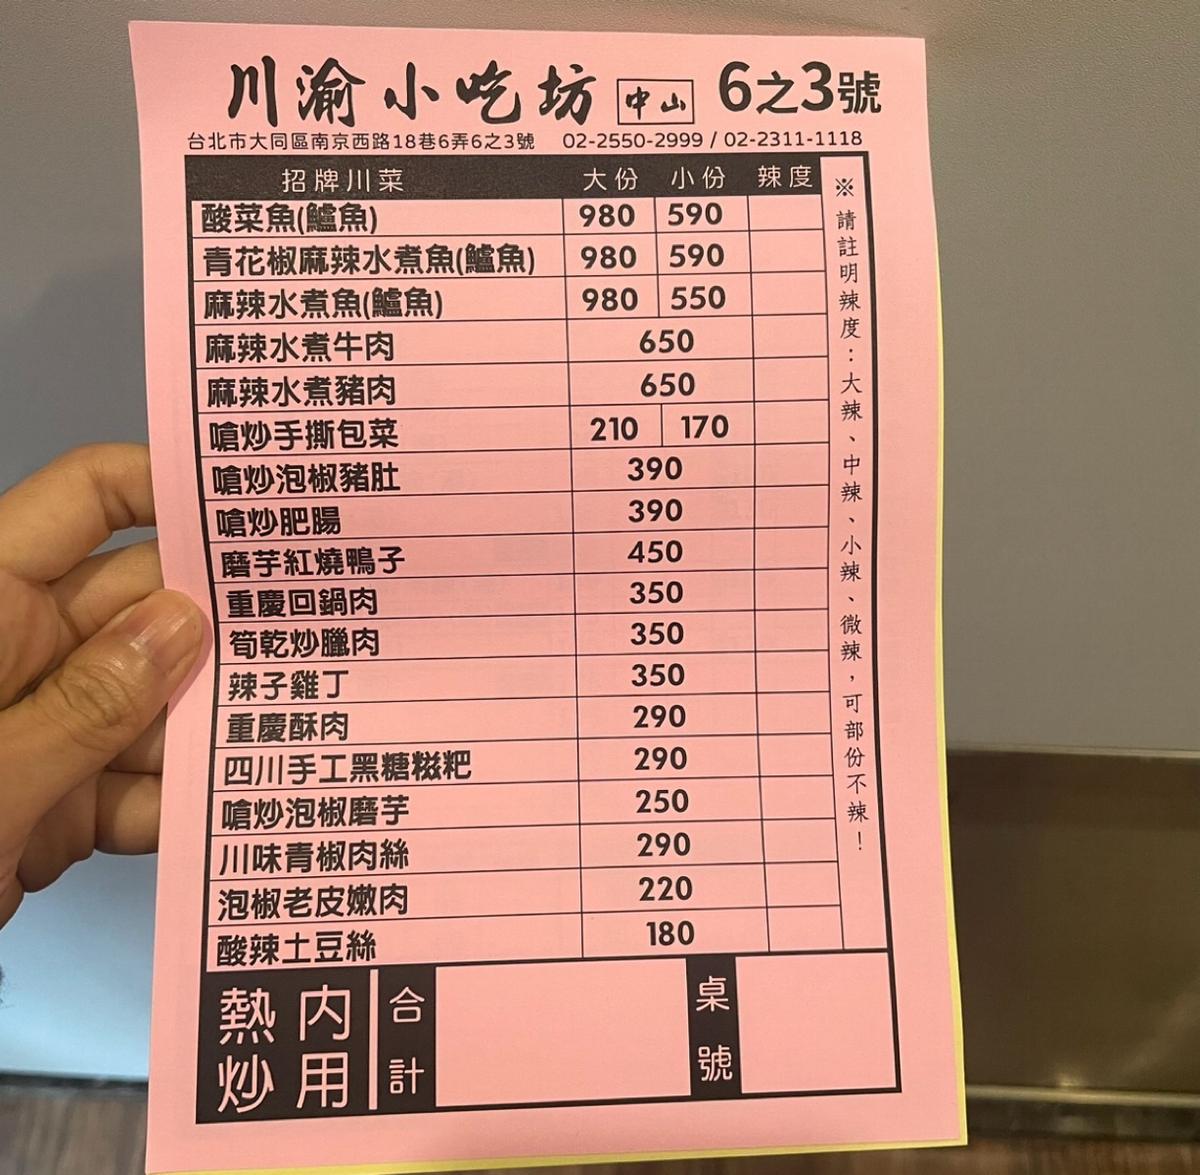 川渝小吃坊 中山 6之3號
台北市大同區南京西路18巷6弄6之3號 02-2550-2999 / 02-2311-1118
招牌川菜 大份 小份 辣度
酸菜魚(鱸魚) 980 590
青花椒麻辣水煮魚(鱸魚) 980 590
麻辣水煮魚(鱸魚) 980 550
麻辣水煮牛肉 650
麻辣水煮豬肉 650
嗆炒手撕包菜 210 170
嗆炒泡椒豬肚 390
嗆炒肥腸 390
磨芋紅燒鴨子 450
重慶回鍋肉 350
筍乾炒臘肉 350
辣子雞丁 350
重慶酥肉 290
四川手工黑糖糍粑 290
嗆炒泡椒磨芋 250
川味青椒肉絲 290
泡椒老皮嫩肉 220
酸辣土豆絲 180
※請註明辣度：大辣、中辣、小辣、微辣，可部份不辣！
熱炒
內用
合計
桌號